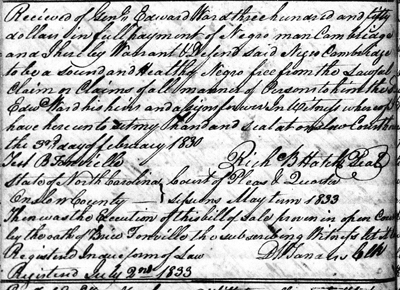 Recieved of Genl. Edward Ward three hundred and fifty
dollars in full payment of Negro man Cambridge
and I hereby Warrant & Defend said Negro Cambridge
to be a sound and Healthy Negro free from the Lawful
Claim or Claims of all manner of Persons to him the sd
Edwd. Ward his heirs and assigns forever In Witness whereof I
have hereunto set my hand and seal at Onslow Courthouse
the 3rd day of February 1830
Test B Fonville Richd. B Hatch Seal
State of North Carolina Court of Pleas & Quarter
Onslow County Sessions May term 1833
Then was the Execution of this bill of Sale proven in open Court
by the oath of Brice Fonville the subscribing Witness
Registered In due form of Law
Registered July 2nd 1833